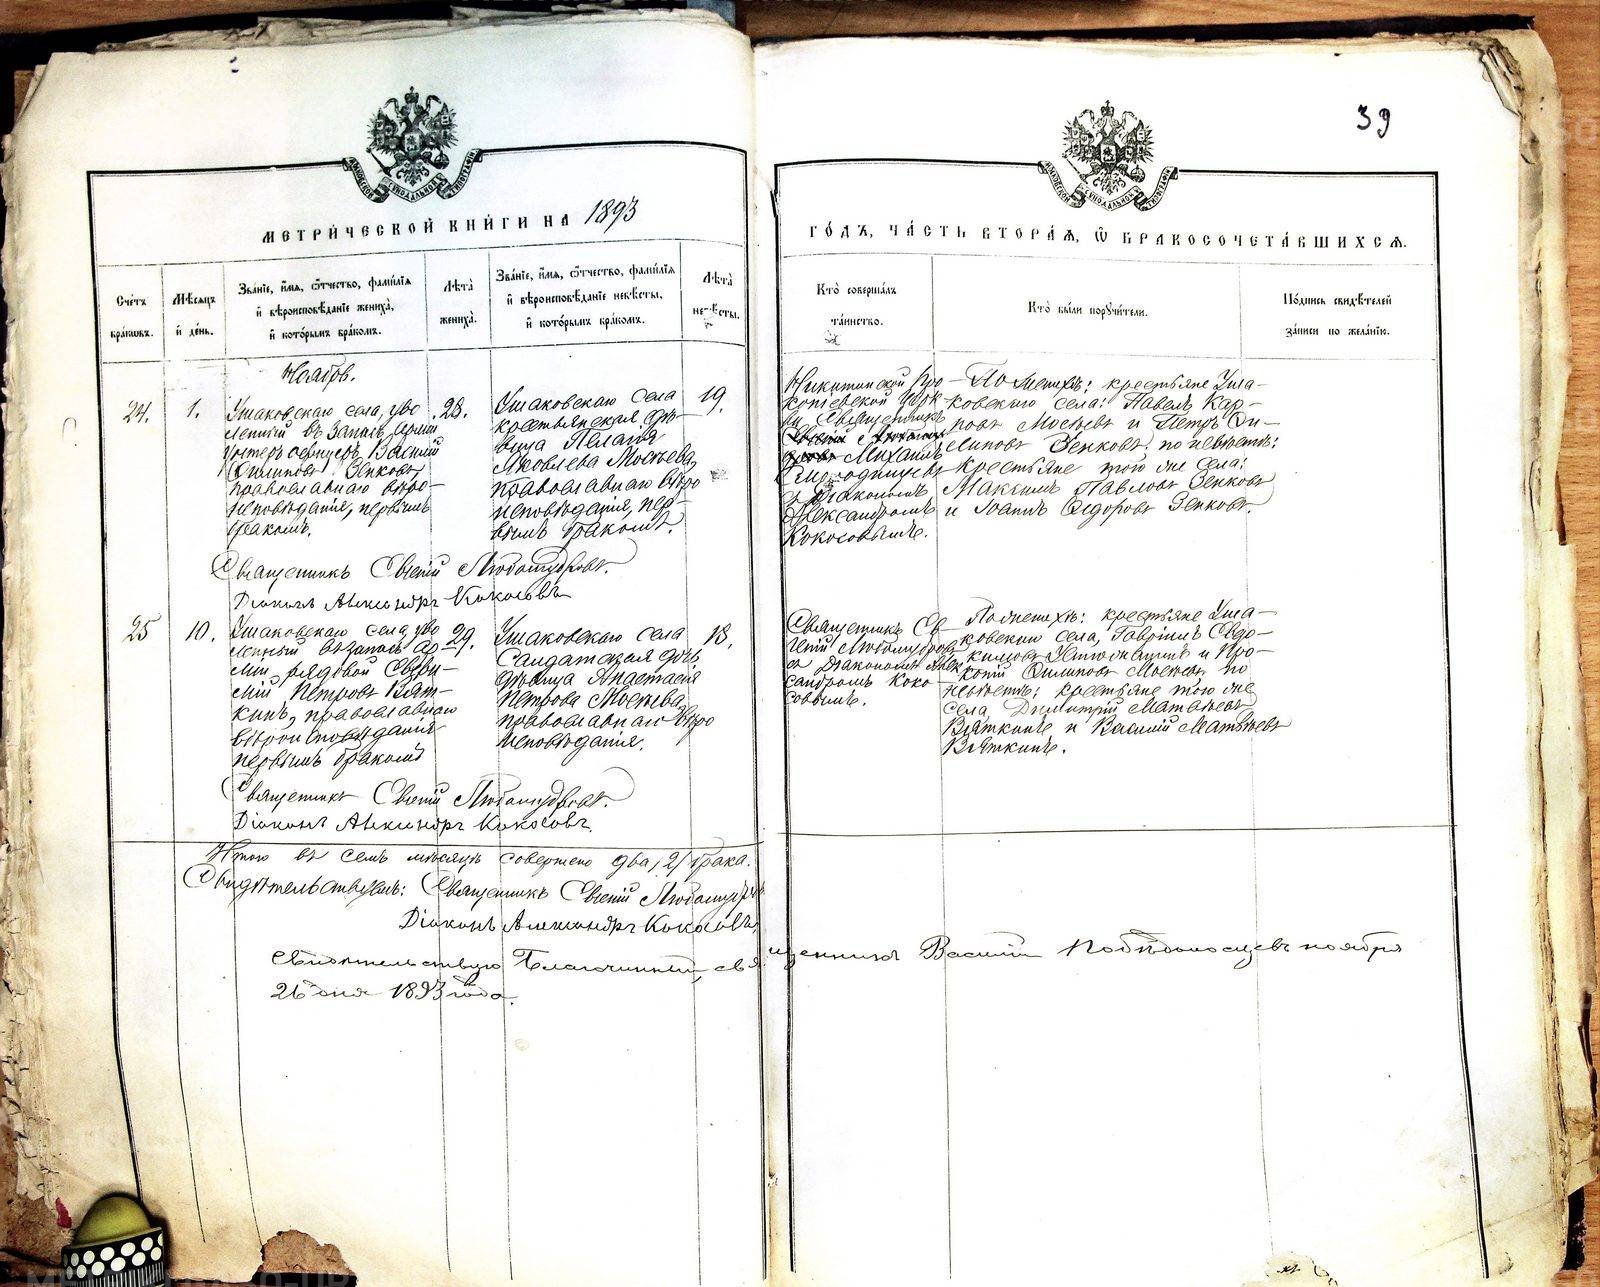 39
МОСКОВСКОЙ СѴНОДАЛЬНОЙ ТИПОГРАФІИ
МОСКОВСКОЙ СѴНОДАЛЬНОЙ ТИПОГРАФІИ
МЕТРИ́ЧЕСКОЙ КНИ́ГИ НА 1893
ГО́ДЪ, ЧА́СТЬ ВТОРА́Я, Ѿ БРАКОСОЧЕТА́ВШИХСЯ.
Сче́тъ
бра́ковъ.
Мѣ́сяцъ
и҆ де́нь.
Зва́нїе, и҆́мя, ѻ҆́тчество, фами́лїя
и҆ вѣроисповѣ́данїе жениха̀,
и҆ кото́рымъ бра́комъ.
Лѣ́та
жениха̀.
Зва́нїе, и҆́мя, ѻ҆́тчество, фами́лїя
и҆ вѣроисповѣ́данїе невѣ́сты,
и҆ кото́рымъ бра́комъ.
Лѣ́та
невѣ́сты.
Кто̀ соверша́лъ
та́инство.
Кто̀ бы́ли поручи́тели.
По́дпись свидѣ́телей
за́писи по жела́нїю.
Ноябрь.
24.
1.
Ушаковскаго села, уво
ленный въ запасъ арміи
Василій
Филиповъ Зенковъ,
православнаго вѣро-
исповѣданія, первымъ
бракомъ.
28.
Ушаковскаго села
крестьянская дѣ-
вица Пелагія
Яковлева Мосѣева,
православнаго вѣро
исповѣданія, пер-
вымъ бракомъ.
19.
Никитинской Про
копіевской Церк
ви Священникъ
Михаилъ
Смородинцевъ
съ Діакономъ
Александромъ
Кокосовымъ.
По женихѣ: крестьяне Уша-
ковскаго села: Павелъ Кар-
повъ Мосѣевъ и Петръ Фи-
липовъ Зенковъ, по невѣстѣ:
крестьяне того же села:
Максимъ Павловъ Зенковъ
и Іоаннъ Ѳедоровъ Зенковъ.
Священникъ Евгеній Любомудровъ.
Діаконъ Александръ Кокосовъ
25
10.
Ушаковскаго села, уво
ленный въ запасъ ар
міи рядовой Евѳи-
мій Петровъ Вят-
кинъ, православнаго
вѣроисповѣданія
первымъ бракомъ
29.
Ушаковскаго села
Солдатская дочь,
дѣвица Анастасія
Петрова Мосѣева,
православнаго вѣро
исповѣданія.
18.
Священникъ Ев-
геній Любомудровъ
съ Діакономъ Алек
сандромъ Коко-
совымъ.
По женихѣ: крестьяне Уша-
ковскаго села, Гавріилъ Евдо-
кимовъ и Про-
копій Филиповъ Мосѣевъ, по
невѣстѣ: крестьяне того же
села, Димитрій Матвѣевъ
Вяткинъ и Василій Матвѣевъ
Вяткинъ.
Священникъ Евгеній Любомудровъ.
Діаконъ Александръ Кокосовъ.
Итого въ семъ мѣсяцѣ совершено два /2/ брака.
Свидѣтельствуемъ: Священникъ Евгеній Любомудровъ
Діаконъ Александръ Кокосовъ,
Свидѣтельствую Благочинный, священникъ Василій Побѣдоносцевъ ноября
26 дня 1893 года.